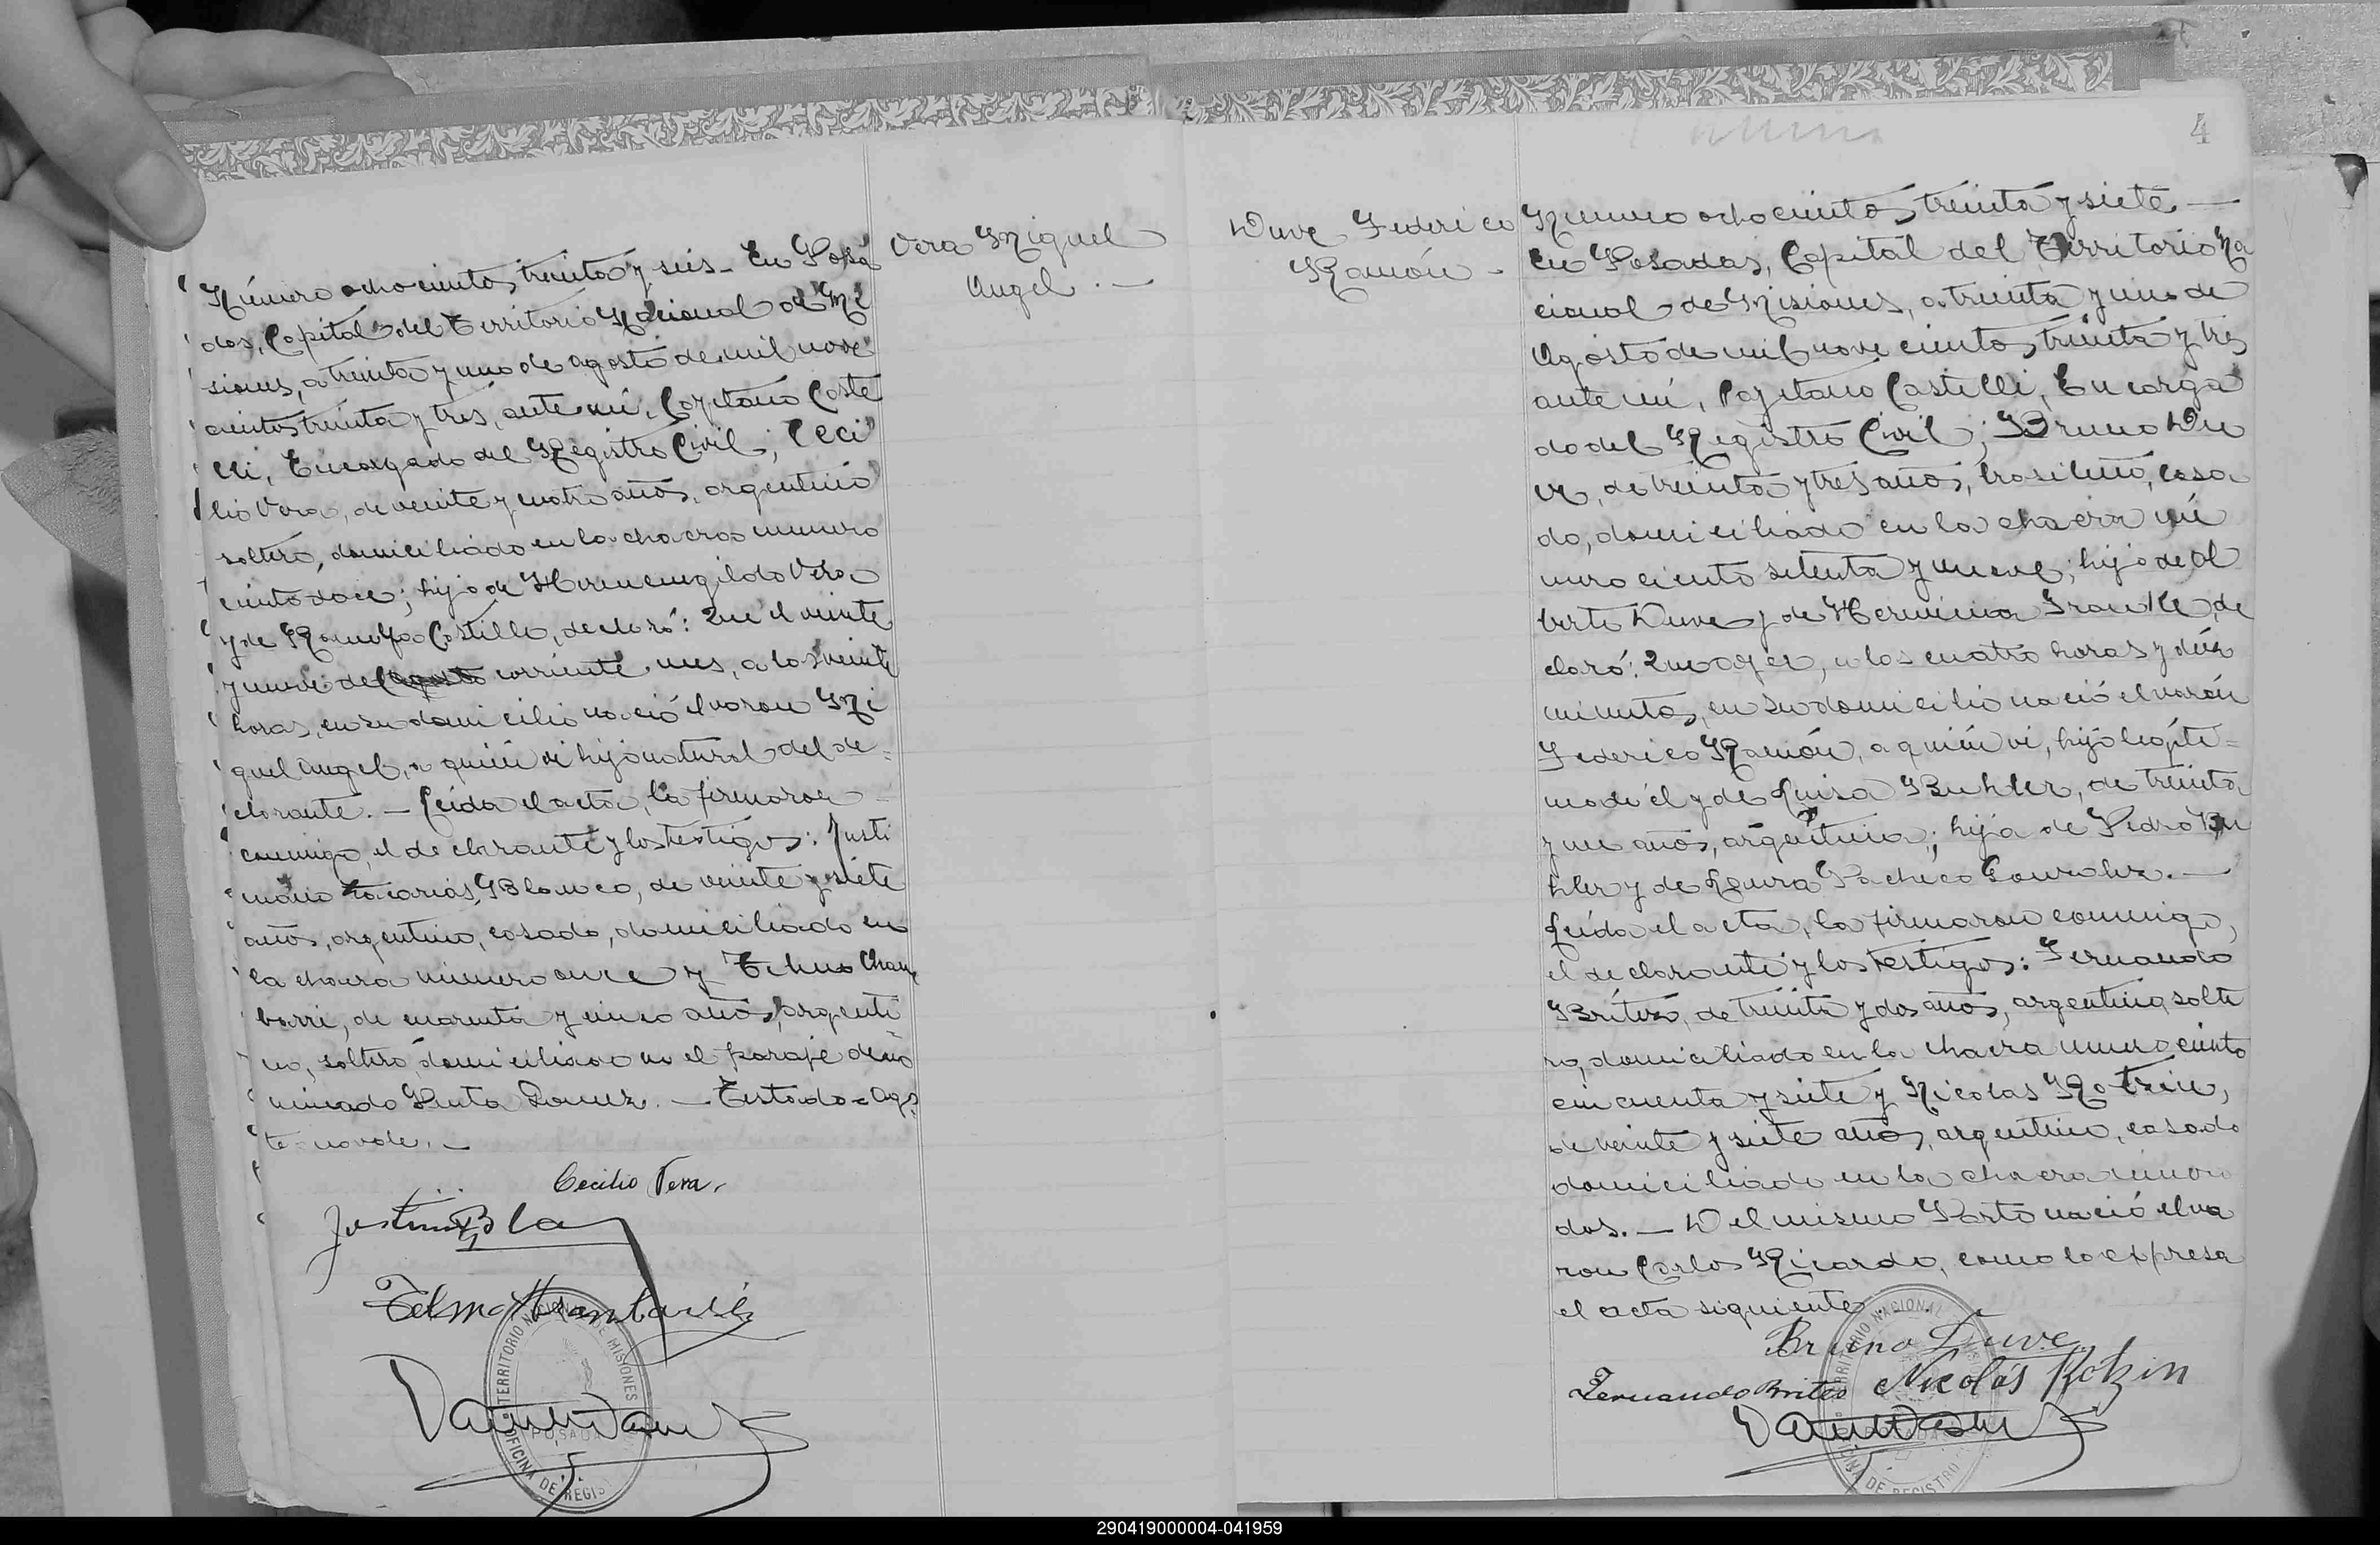 Vera Miguel
Angel.—
Número ochocientos treinta y seis - En Posa
das, Capital del Territorio Nacional de Mi
siones, a treinta y uno de agosto de mil nove
cientos treinta y tres, ante mí, Cayetano Caste
lli, Encargado del Registro Civil; Ceci
lio Vera, de veinte y cuatro años, argentino
soltero, domiciliado en la chacra número
ciento doce; hijo de Hermenegildo Vera
y de Castillo, declaró: Que el veinte
y nueve del agosto corriente mes, a las veinte
horas, en su domicilio nació el varon Mi
guel Angel, a quien ví hijo natural del de=
clarante. — Leida el acta, la firmaron
conmigo, el declarante y los testigos: Justi
niano Blanco, de veinte y siete
años, argentino, casado, domiciliado en
la chacra número once y Telmo Cham
barri, de cuarenta y cinco años, argenti
no, soltero, domiciliado en el paraje deno
minado Gomez. — Testado = Ago
to = no vale. —
Cecilio Vera
4
Duve Federico
Ramón -
Número ochocientos treinta y siete —
En Posadas, Capital del Territorio Na
cional de Misiones, a treinta y uno de
Agosto de mil novecientos treinta y tres
ante mí, Cayetano Castelli, Encarga
do del Registro Civil; Bruno Du
ve, de treinta y tres años, brasileño, casa
do, domiciliado en la chacra nú
mero ciento setenta y nueve; hijo de Al
berto Duve y de Herminia Franke, de
claró: Que ayer, a las cuatro horas y diez
minutos, en su domicilio nació el varón
Federico Ramón, a quién ví, hijo legíti=
mo de él y de Luisa Buhler, de treinta
y un años, argentina; hija de Pedro Bu
hler y de Laura Pacheco Gonzalez. —
Leída el acta, la firmaron conmigo,
el declarante y los testigos: Fernando
Brítez, de treinta y dos años, argentino, solte
ro, domiciliado en la chacra numero ciento
cincuenta y siete y Nicolas Rotzin,
de veinte y siete años, argentino, casado
domiciliado en la chacra número
dos. — Del mismo Parto nació el va
ron Carlos Ricardo, como lo expresa
el acta siguiente.
Bruno Duve
Fernando Britez Nicolás Rotzin
TERRITORIO NACIONAL DE MISIONES
OFICINA DE REGISTRO
290419000004-041959